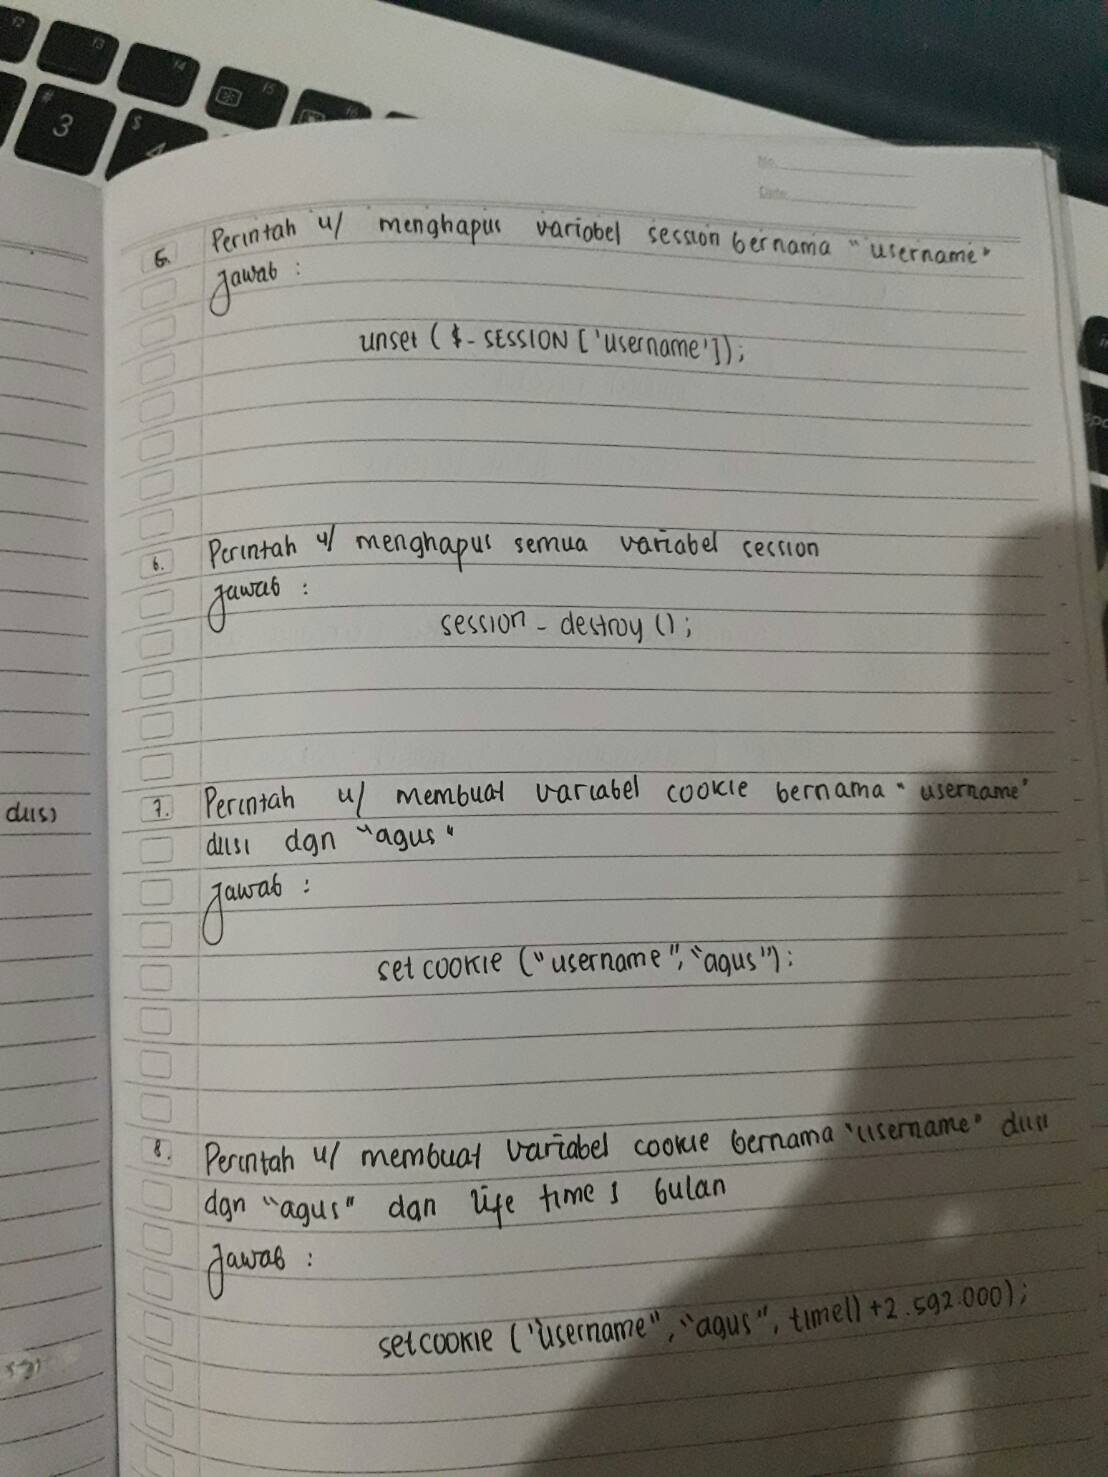 F2
F3
F4
F5
F6
#
3
$
4
No.
Date
5. Perintah u/ menghapus variabel session bernama "username"
Jawab :
unset ($_SESSION ['username']);
6. Perintah u/ menghapus semua variabel session
Jawab :
session_destroy ();
7. Perintah u/ membuat variabel cookie bernama "username"
diisi dgn "agus"
Jawab :
set cookie ("username", "agus");
8. Perintah u/ membuat variabel cookie bernama "username" diisi
dgn "agus" dan life time 1 bulan
Jawab :
setcookie ("username", "agus", time() +2.592.000);
diisi